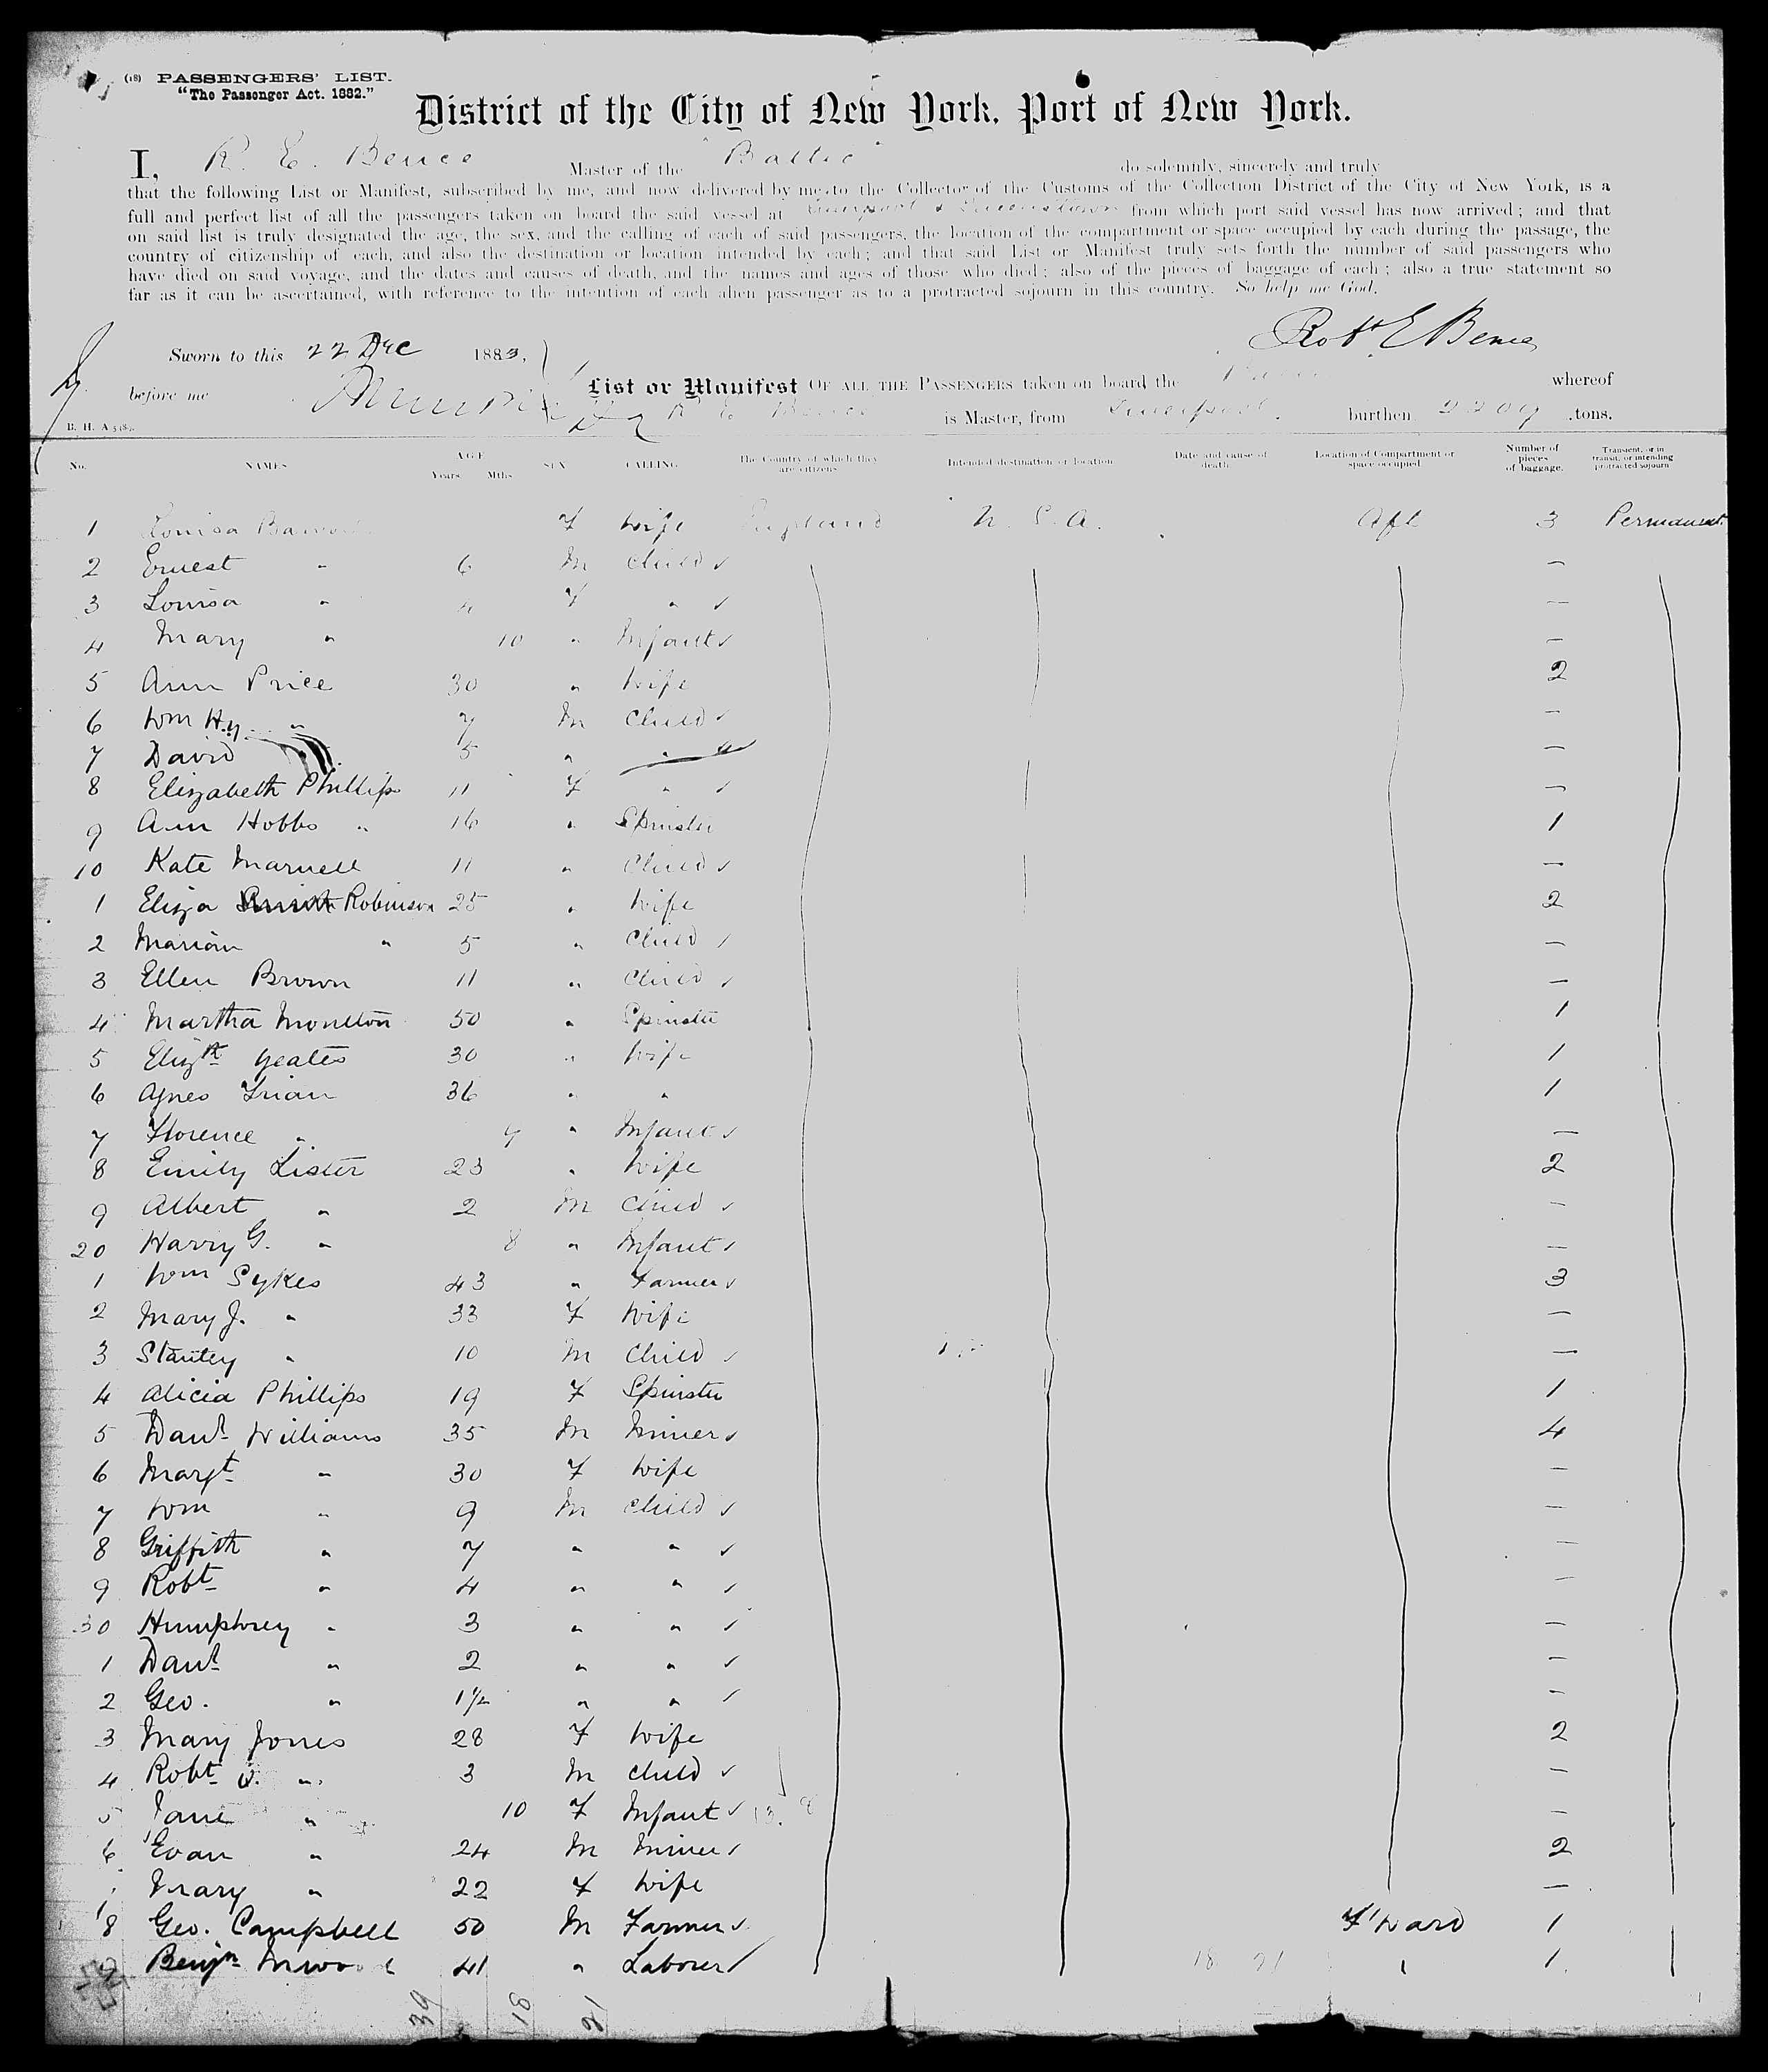 (18) PASSENGERS' LIST.
"The Passenger Act. 1882."
District of the City of New York, Port of New York.
I, R. E. Bence Master of the "Baltic" do solemnly, sincerely and truly
that the following List or Manifest, subscribed by me, and now delivered by me to the Collector of the Customs of the Collection District of the City of New York, is a
full and perfect list of all the passengers taken on board the said vessel at Liverpool & Queenstown from which port said vessel has now arrived; and that
on said list is truly designated the age, the sex, and the calling of each of said passengers, the location of the compartment or space occupied by each during the passage, the
country of citizenship of each, and also the destination or location intended by each; and that said List or Manifest truly sets forth the number of said passengers who
have died on said voyage, and the dates and causes of death, and the names and ages of those who died; also of the pieces of baggage of each; also a true statement so
far as it can be ascertained, with reference to the intention of each alien passenger as to a protracted sojourn in this country. So help me God.
Robt E Bence
Sworn to this 22 Dec 1883,
before me
List or Manifest OF ALL THE PASSENGERS taken on board the whereof
R E Bence is Master, from Liverpool burthen 2209 tons.
No. NAMES AGE Years Mths SEX CALLING The Country of which they are citizens Intended destination or location Date and cause of death Location of Compartment or space occupied Number of pieces of baggage. Transient, or in transit, or intending protracted sojourn
1 Louisa F Wife England U. S. A. Aft 3 Permanent
2 Ernest " 6 M Child ✓ —
3 Louisa " 4 F " ✓ —
4 Mary " 10 " Infant ✓ —
5 Ann Price 30 " Wife 2
6 Wm Hy " 7 M Child ✓ —
7 David 5 " " —
8 Elizabeth Phillips 11 F " ✓ —
9 Ann Hobbs " 16 " Spinster 1
10 Kate Marnell 11 " Child ✓ —
1 Eliza Robinson 25 " Wife 2
2 Marian " 5 " Child ✓ —
3 Ellen Brown 11 " Child ✓ —
4 Martha Moulton 50 " Spinster 1
5 Elizth Yeates 30 " Wife 1
6 Agnes 36 " " 1
7 Florence " " Infant ✓ —
8 Emily Lister 23 " Wife 2
9 Albert " 2 M Child ✓ —
20 Harry G. " 8 " Infant ✓ —
1 Wm Sykes 43 " Farmer ✓ 3
2 Mary J. " 33 F Wife —
3 Stanley " 10 M Child ✓ —
4 Alicia Phillips 19 F Spinster 1
5 Danl Williams 35 M Miner ✓ 4
6 Margt " 30 F Wife —
7 Wm " 9 M Child ✓ —
8 Griffith " 7 " " ✓ —
9 Robt " 4 " " ✓ —
30 Humphrey " 3 " " ✓ —
1 Danl " 2 " " ✓ —
2 Geo. " 1½ " " ✓ —
3 Mary Jones 28 F Wife 2
4 Robt " 3 M Child ✓ —
5 Jane " 10 F Infant ✓ —
6 Evan " 24 M Miner ✓ 2
Mary " 22 F Wife —
8 Geo. Campbell 50 M Farmer ✓ F'ward 1
Benjn 41 " Laborer ✓ 18 21 " 1
39 18 21